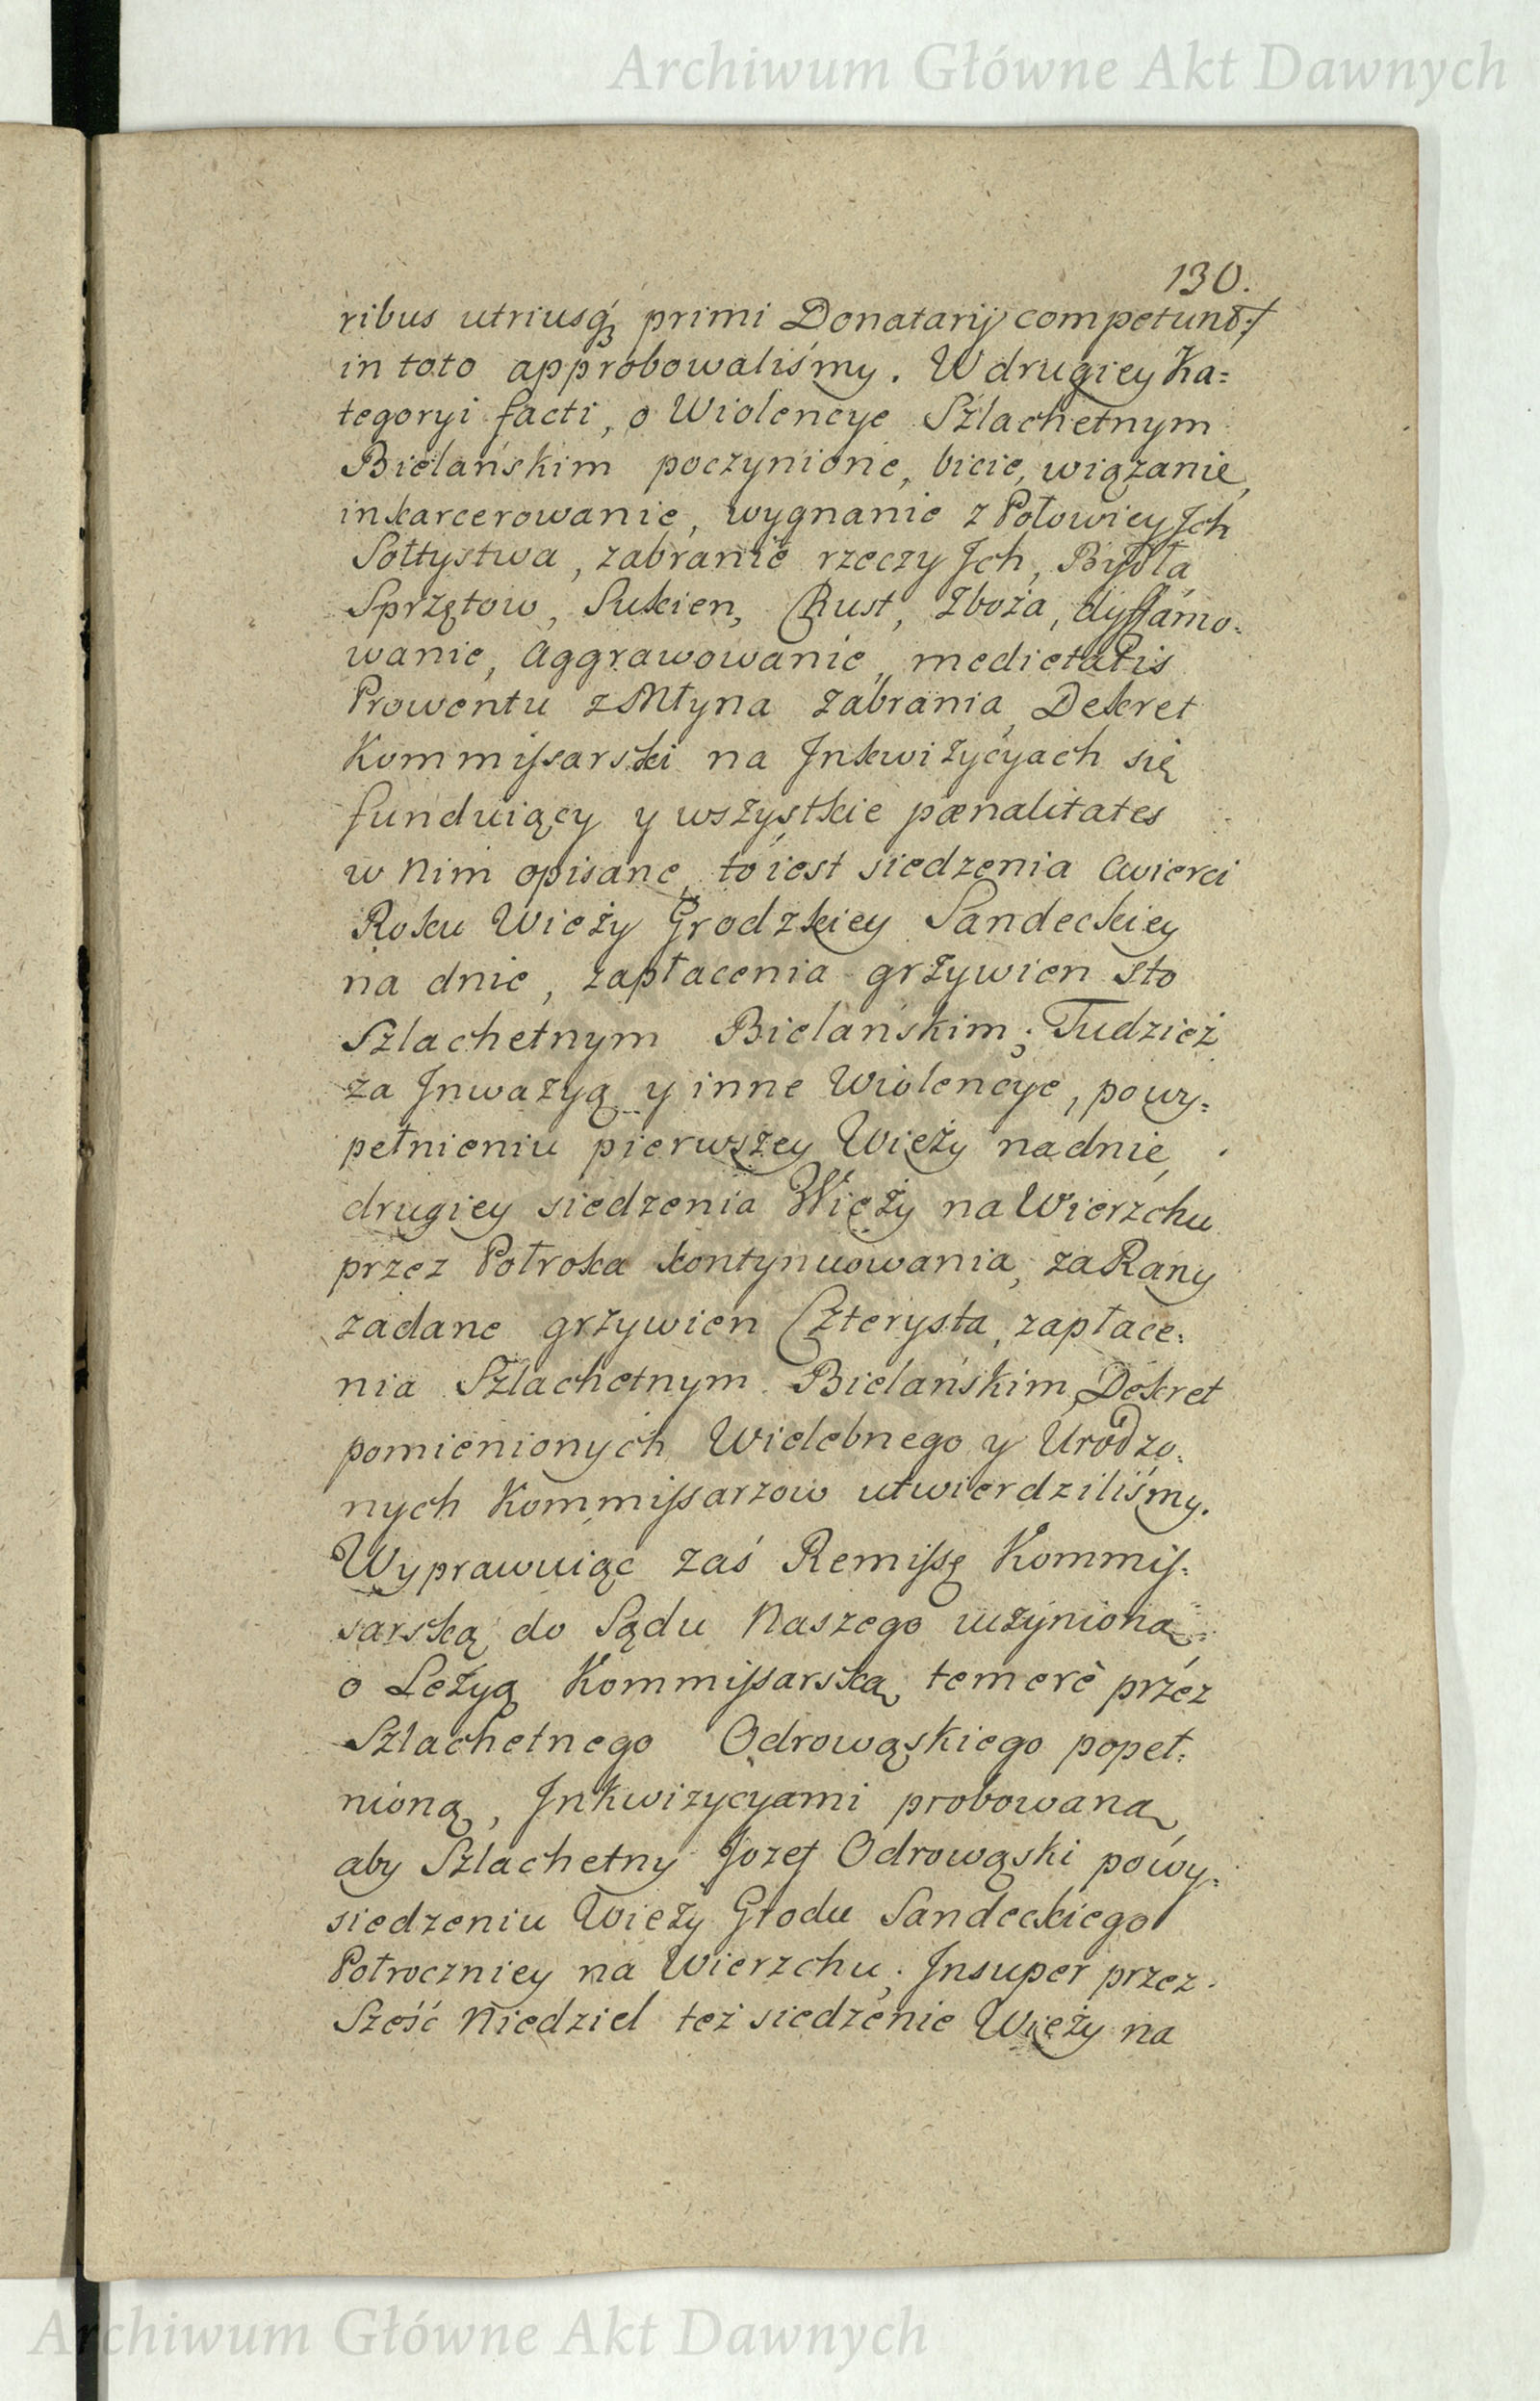 Archiwum Główne Akt Dawnych
130.
ribus utriusq́ primi Donatarij competunt:/
in toto approbowaliśmy. W drugiey Ka=
tegoryi facti, o Wiolencye Szlachetnym
Bielańskim poczynione, bicie, wiązanie,
inkarcerowanie, wygnanie z Połowicy Jch
Sołtystwa, zabranie rzeczy Jch, Bydła
Sprzętow, Sukien, Chust, Zboża, dyffamo=
wanie, Aggrawowanie, medietatis
Prowentu z Młyna zabrania, Dekret
Kommissarski na Jnkwizycyach się
funduiący y wszystkie pænalitates
w Nim opisane, to iest siedzenia Cwierci
Roku Wieży Grodzkiey Sandeckiey
na dnie, zapłacenia grzywien sto
Szlachetnym Bielańskim; Tudzież
za Jnwazyą y inne Wiolencye, po wy=
pełnieniu pierwszey Wieży na dnie,
drugiey siedzenia Wieży na Wierzchu
przez Połroka kontynuowania, za Rany
zadane grzywien Czterysta, zapłace=
nia Szlachetnym Bielańskim, Dekret
pomienionych Wielebnego y Urodzo=
nych Kommissarzow utwierdziliśmy.
Wyprawuiąc zaś Remissę Kommis=
sarską do Sądu Naszego uczynioną
o Lezyą Kommissarską temerè przez
Szlachetnego Odrowąskiego popeł=
nioną, Jnkwizycyami probowaną,
aby Szlachetny Jozef Odrowąski po wy=
siedzeniu Wieży Grodu Sandeckiego
Połroczniey na Wierzchu, Jnsuper przez
Sześć Niedziel też siedzenie Wieży na
Archiwum Główne Akt Dawnych